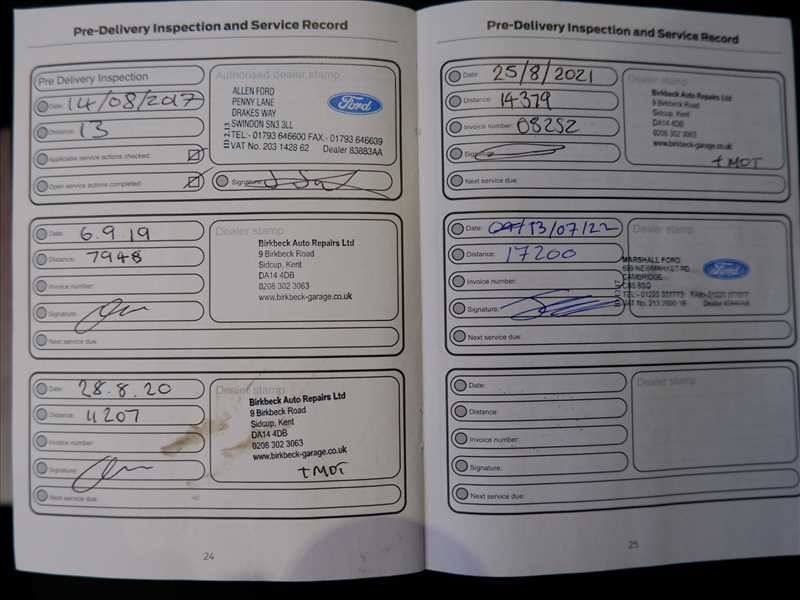 Pre-Delivery Inspection and Service Record
Pre Delivery Inspection
Date: 14/08/2017
Distance: 13
Applicable service actions checked:
Open service actions completed:
Authorised dealer stamp
ALLEN FORD
PENNY LANE
DRAKES WAY
SWINDON SN3 3LL
TEL:- 01793 646600 FAX:- 01793 646639
VAT No. 203 1428 62 Dealer 83883AA
Ford
Signature:
Date: 6.9.19
Distance: 7948
Invoice number:
Signature:
Next service due:
Dealer stamp
Birkbeck Auto Repairs Ltd
9 Birkbeck Road
Sidcup, Kent
DA14 4DB
0208 302 3063
www.birkbeck-garage.co.uk
Date: 28.8.20
Distance: 11207
Invoice number:
Signature:
Next service due:
Dealer stamp
Birkbeck Auto Repairs Ltd
9 Birkbeck Road
Sidcup, Kent
DA14 4DB
0208 302 3063
www.birkbeck-garage.co.uk
+ MOT
24
Pre-Delivery Inspection and Service Record
Date: 25/8/2021
Distance: 14379
Invoice number: 08252
Next service due:
Dealer stamp
Birkbeck Auto Repairs Ltd
9 Birkbeck Road
Sidcup, Kent
DA14 4DB
0208 302 3063
www.birkbeck-garage.co.uk
+ MOT
Date: 13/07/22
Distance: 17200
Invoice number:
Signature:
Next service due:
Dealer stamp
MARSHALL FORD
CAMBRIDGE
Ford
Date:
Distance:
Invoice number:
Signature:
Next service due:
Dealer stamp
25